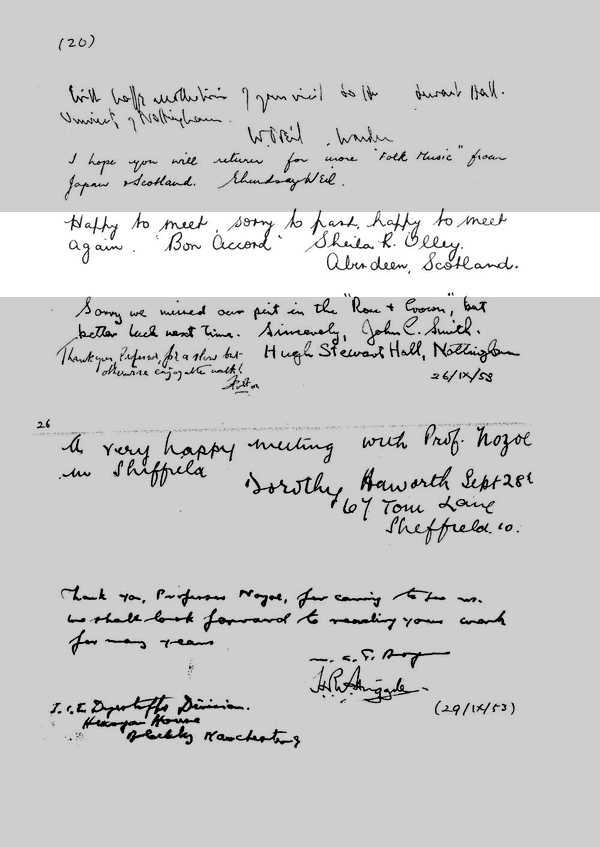 (20)
With happy recollections of your visit to the Stewart Hall.
University of Nottingham.
Warden
I hope you will return for more "Folk Music" from
Japan & Scotland.
Happy to meet, sorry to part, happy to meet
again. "Bon Accord" Sheila R. Olley.
Aberdeen, Scotland.
Sorry we missed our pint in the "Rose & Crown", but
better luck next time. Sincerely, John C. Smith.
Thank you, Professor, for a slow but
Hugh Stewart Hall, Nottingham
otherwise enjoyable walk!
26/IX/53
26
A very happy meeting with Prof. Nozoe
in Sheffield
Dorothy Haworth Sept 28th
67 Tom Lane
Sheffield. 10.
Thank you, Professor Nozoe, for coming to see us.
we shall look forward to reading your work
for many years
(29/IX/53)
I.C.I. Dyestuffs Division.
Hexagon House
Blackley Manchester 9